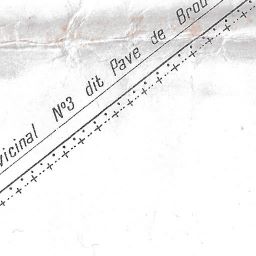 vicinal N°3 dit Pavé de Brou